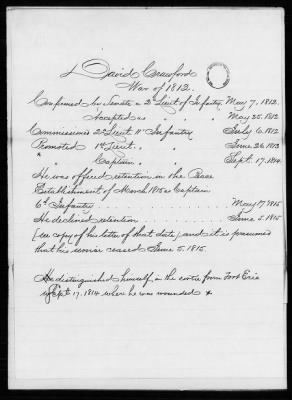 David Crawford
War of 1812.
Confirmed by Senate a 2d Lieut of Infantry May 7, 1812.
Accepted as " " " May 25, 1812
Commissioned 2d Lieut. 11th Infantry July 6, 1812
Promoted 1st Lieut. " " June 26, 1813
" Captain " " Sept. 17, 1814
He was offered retention in the Peace
Establishment of March 1815 as Captain
6th Infantry . . . . May 17, 1815
He declined retention . . . . June 5, 1815
(see copy of his letter of that date) and it is presumed
that his service ceased June 5, 1815.
He distinguished himself in the sortie from Fort Erie
Sept. 17, 1814 where he was wounded